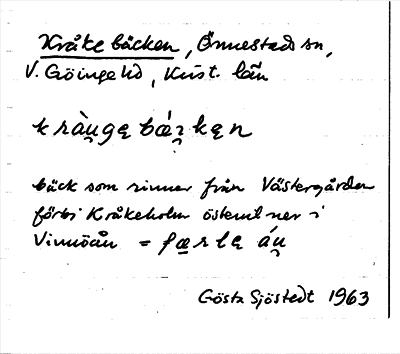 Kråke bäcken, Önnestads sn,
V. Göinge hd, Krist. län
kràu̯gę bǽʒ̨kęn
bäck som rinner från Västergården
förbi Kråkeholm österut ner i
Vinnöån = færlę áu̯
Gösta Sjöstedt 1963